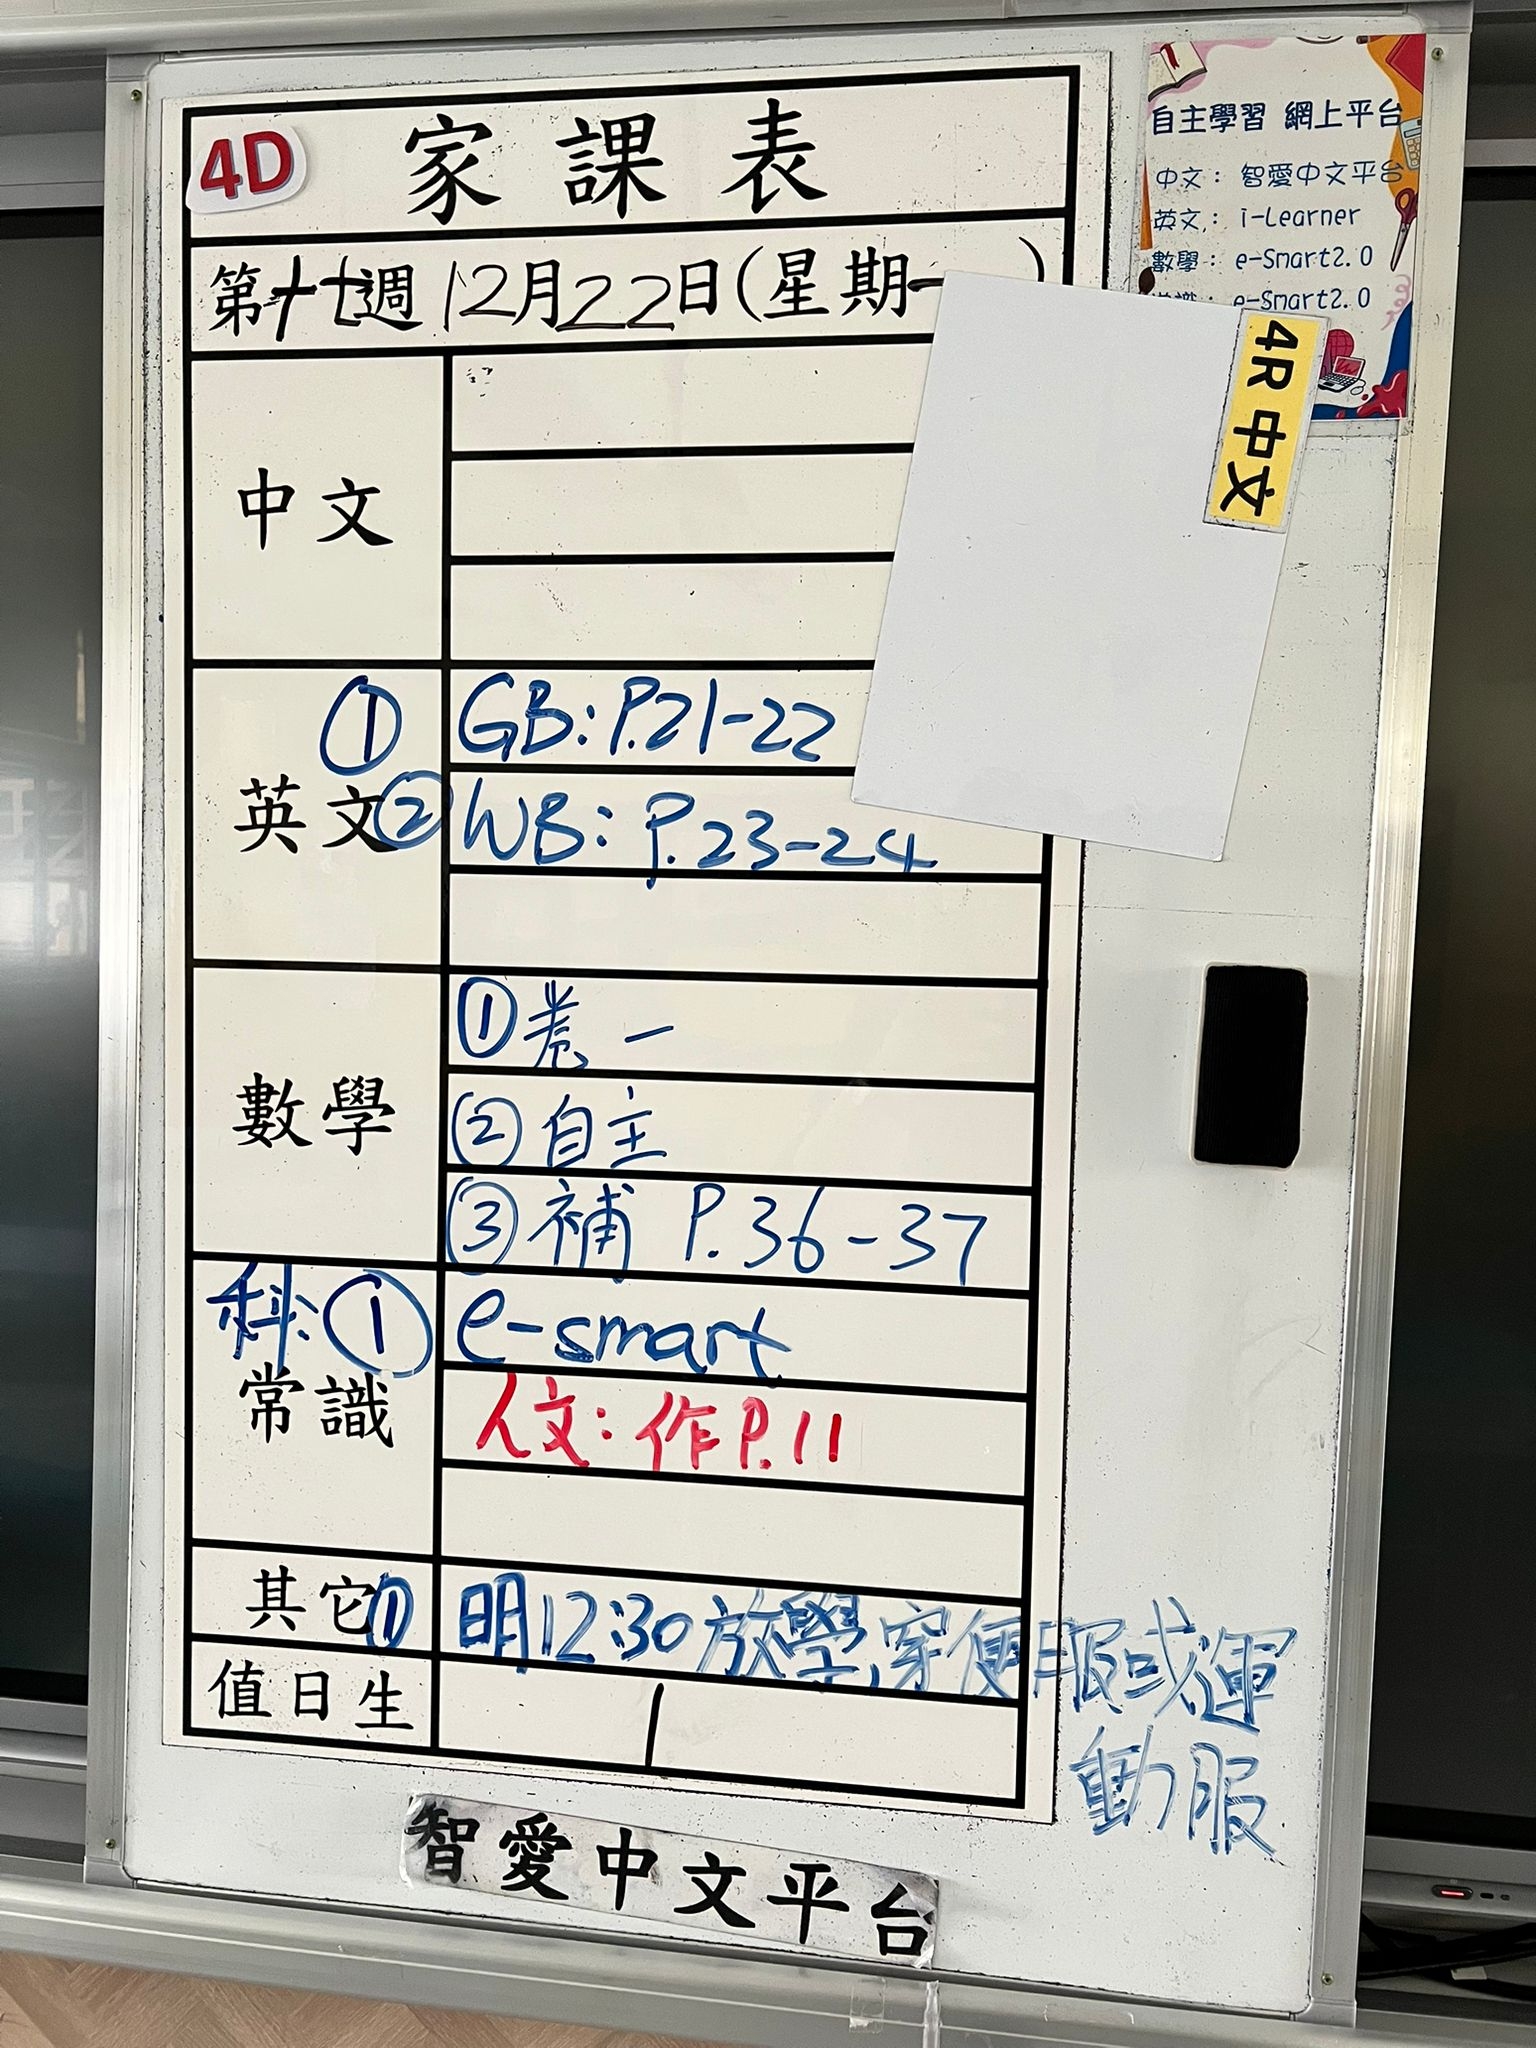 4D 家課表
第十七週 12月22日(星期一)
中文
英文
① GB: P.21-22
② WB: P.23-24
數學
① 卷一
② 自主
③ 補 P.36-37
常識
科: ① e-smart
人文: 作P.11
其它
① 明12:30放學,穿便服或運
動服
值日生
1
智愛中文平台
自主學習 網上平台
中文: 智愛中文平台
英文: i-Learner
數學: e-Smart2.0
常識: e-Smart2.0
4R 中文